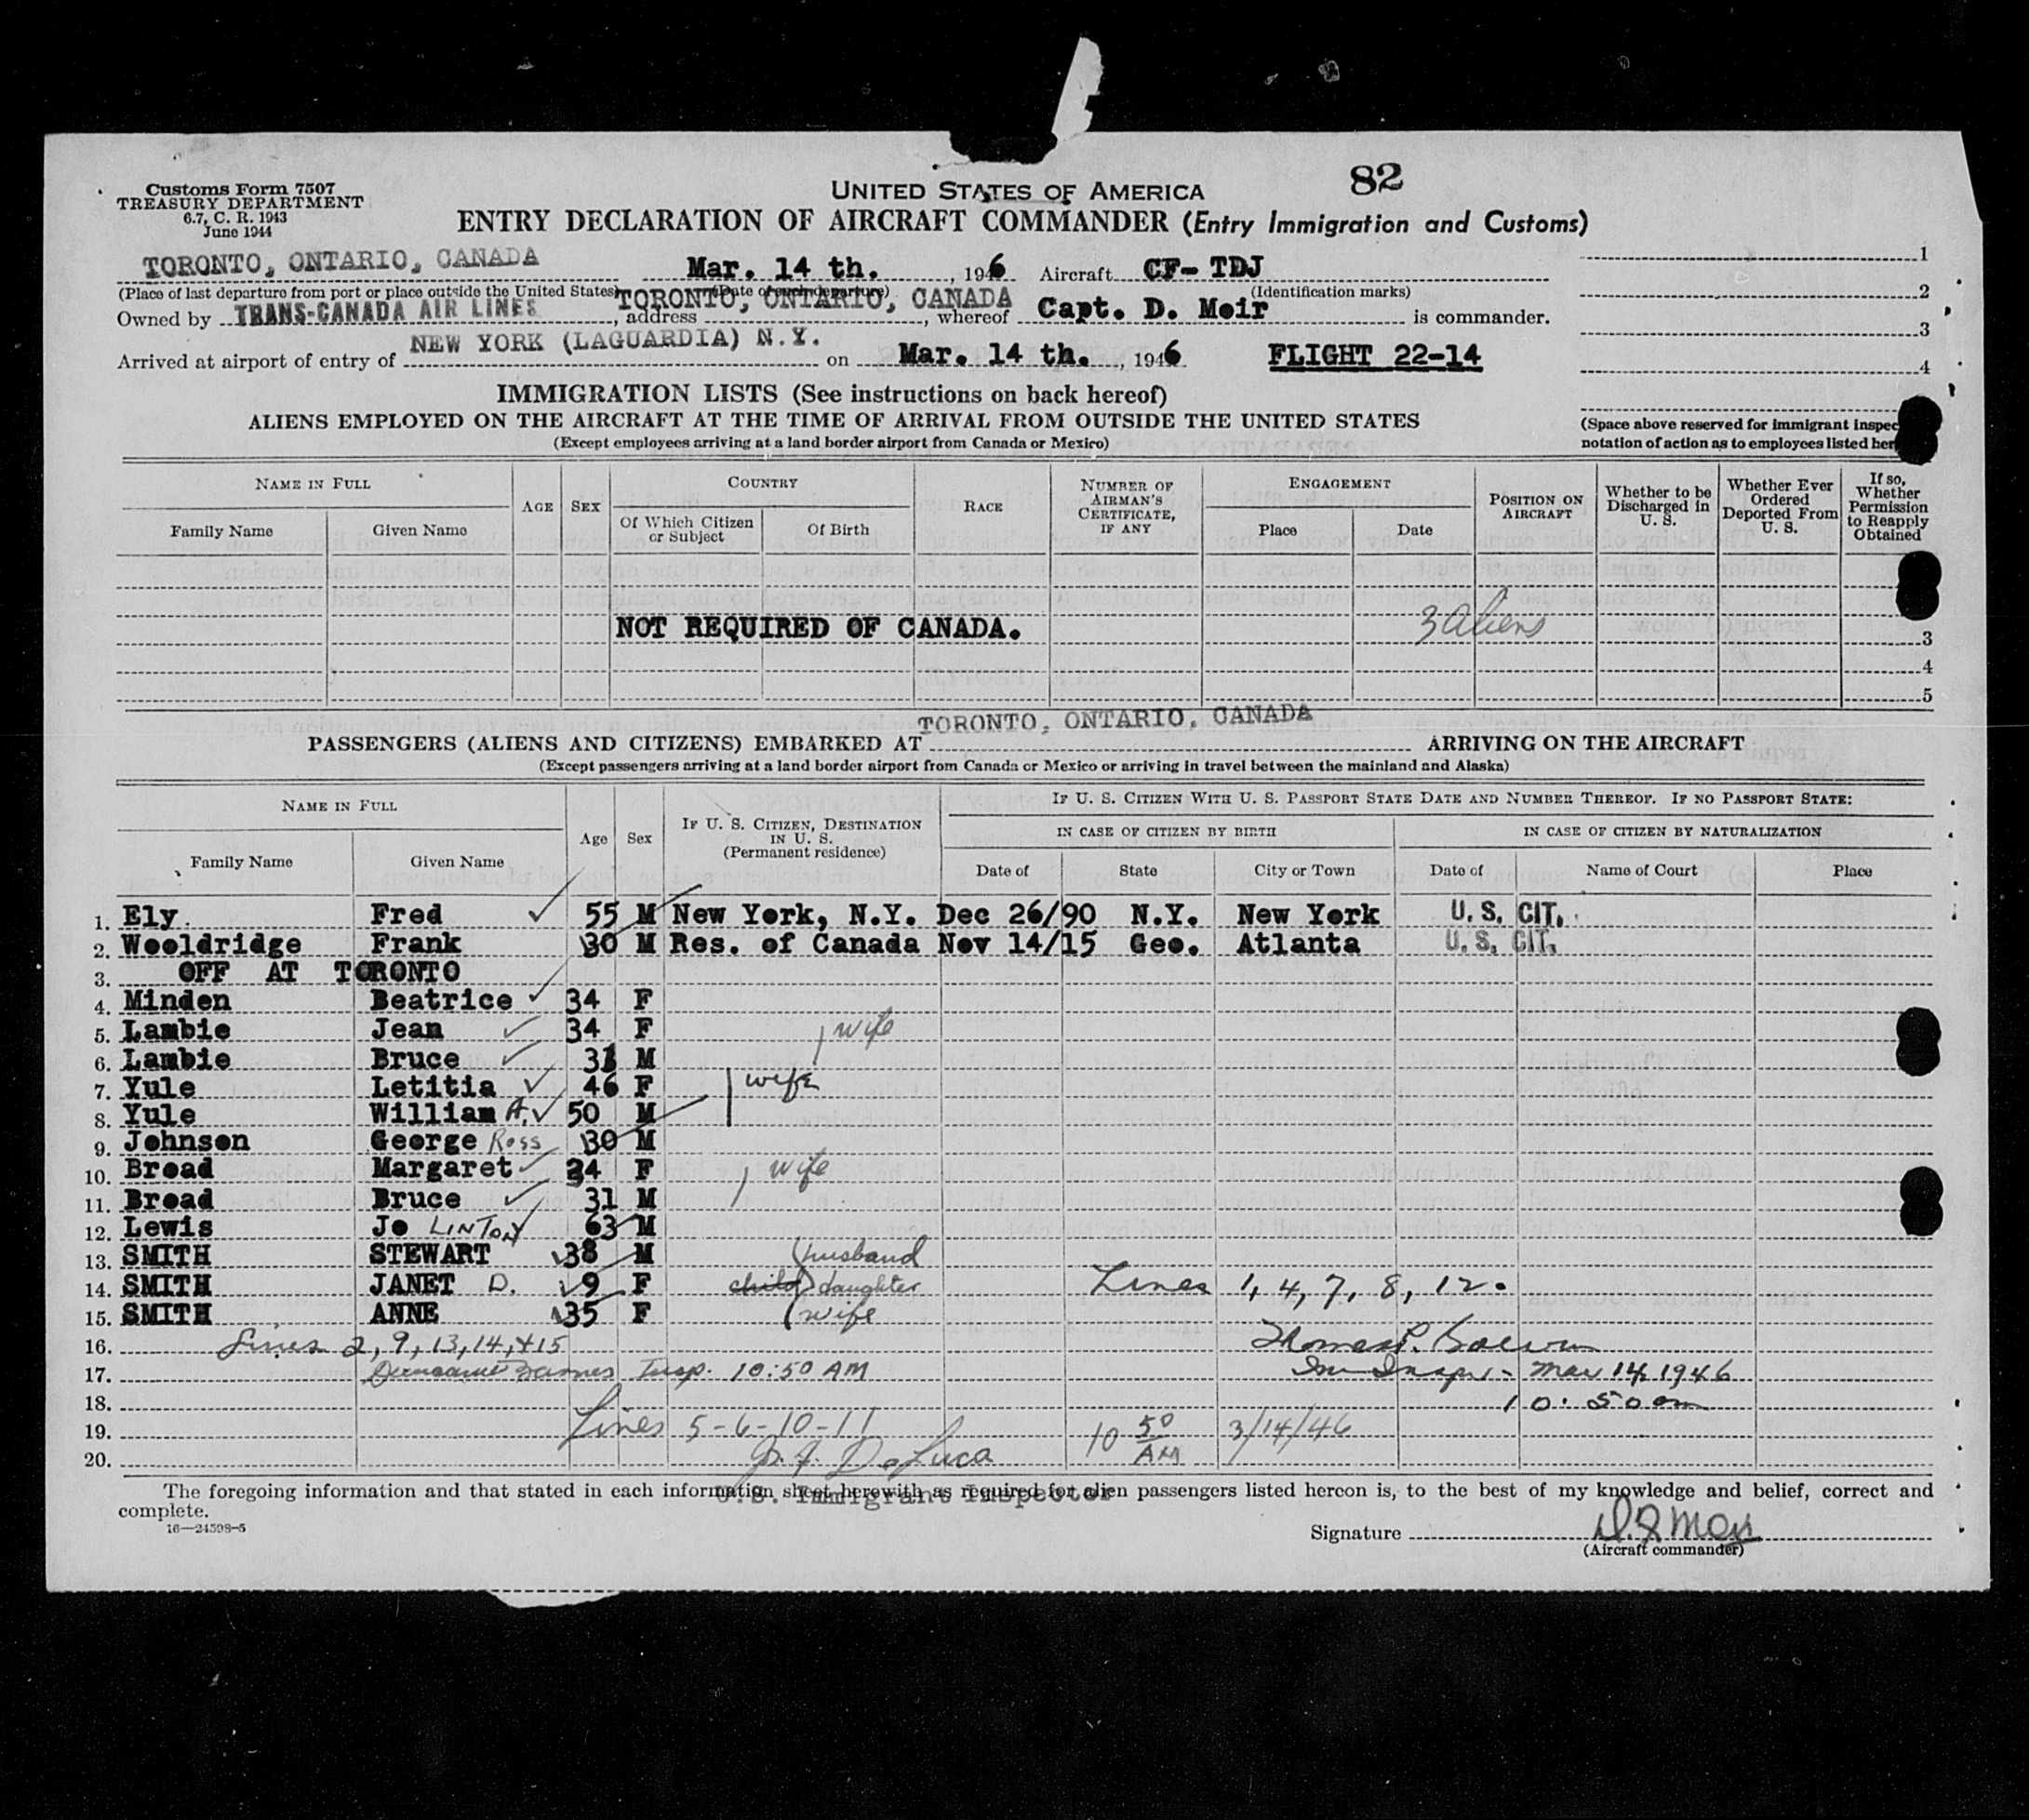 Customs Form 7507
TREASURY DEPARTMENT
6.7, C. R. 1943
June 1944
82
UNITED STATES OF AMERICA
ENTRY DECLARATION OF AIRCRAFT COMMANDER (Entry Immigration and Customs)
TORONTO, ONTARIO, CANADA Mar. 14 th., 1946 Aircraft CF-TDJ 1
(Place of last departure from port or place outside the United States) (Date of such departure) (Identification marks) 2
Owned by TRANS-CANADA AIR LINES, address TORONTO, ONTARIO, CANADA, whereof Capt. D. Moir is commander. 3
Arrived at airport of entry of NEW YORK (LAGUARDIA) N.Y. on Mar. 14 th., 1946 FLIGHT 22-14 4
IMMIGRATION LISTS (See instructions on back hereof)
ALIENS EMPLOYED ON THE AIRCRAFT AT THE TIME OF ARRIVAL FROM OUTSIDE THE UNITED STATES
(Except employees arriving at a land border airport from Canada or Mexico)
(Space above reserved for immigrant inspec
notation of action as to employees listed her
NAME IN FULL AGE SEX COUNTRY RACE NUMBER OF AIRMAN'S CERTIFICATE, IF ANY ENGAGEMENT POSITION ON AIRCRAFT Whether to be Discharged in U. S. Whether Ever Ordered Deported From U. S. If so, Whether Permission to Reapply Obtained
Family Name Given Name Of Which Citizen or Subject Of Birth Place Date
NOT REQUIRED OF CANADA. 3 Aliens 3
4
5
PASSENGERS (ALIENS AND CITIZENS) EMBARKED AT TORONTO, ONTARIO, CANADA ARRIVING ON THE AIRCRAFT
(Except passengers arriving at a land border airport from Canada or Mexico or arriving in travel between the mainland and Alaska)
NAME IN FULL Age Sex IF U. S. CITIZEN, DESTINATION IN U. S. (Permanent residence) IF U. S. CITIZEN WITH U. S. PASSPORT STATE DATE AND NUMBER THEREOF. IF NO PASSPORT STATE:
IN CASE OF CITIZEN BY BIRTH IN CASE OF CITIZEN BY NATURALIZATION
Family Name Given Name Date of State City or Town Date of Name of Court Place
1. Ely Fred 55 M New York, N.Y. Dec 26/90 N.Y. New York U. S. CIT.
2. Wooldridge Frank 30 M Res. of Canada Nov 14/15 Geo. Atlanta U. S. CIT.
3. OFF AT TORONTO
4. Minden Beatrice 34 F
5. Lambie Jean 34 F wife
6. Lambie Bruce M
7. Yule Letitia 46 F wife
8. Yule William A. 50 M
9. Johnson George Ross 30 M
10. Broad Margaret 34 F wife
11. Broad Bruce 31 M
12. Lewis Jo LINTON 63 M
13. SMITH STEWART 38 M husband
14. SMITH JANET D. 9 F child daughter Lines 1, 4, 7, 8, 12.
15. SMITH ANNE 35 F wife
16. Lines 2, 9, 13, 14, +15 Thomas
17. Insp. 10:50 AM Im Inspr - Mar 14, 1946
18. 10:50 am
19. Lines 5-6-10-11 10 50 AM 3/14/46
20. DeLuca
U.S. Immigrant Inspector
The foregoing information and that stated in each information sheet herewith as required for alien passengers listed hereon is, to the best of my knowledge and belief, correct and
complete.
16—24598-5
Signature
(Aircraft commander)